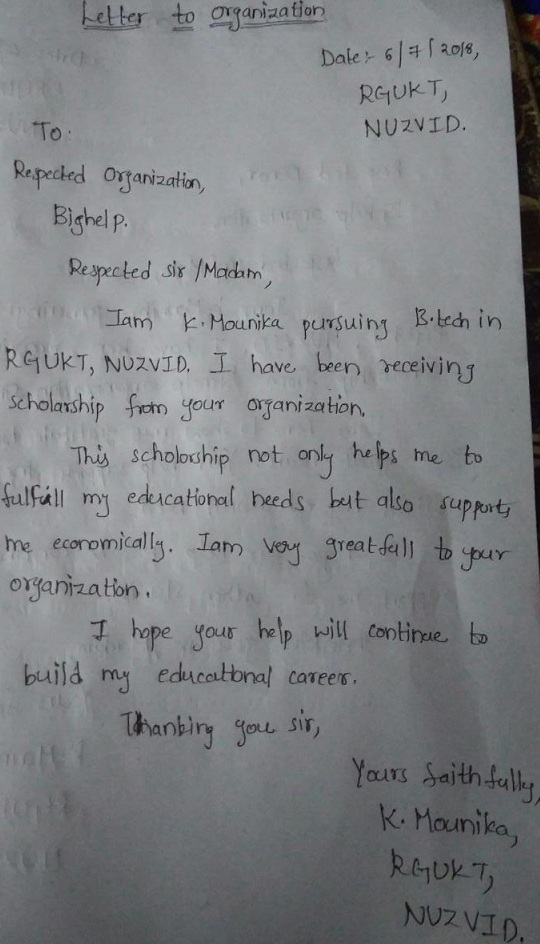 Letter to organization
Date:- 6/7/2018,
RGUKT,
NUZVID.
To:
Respected Organization,
Bighelp.
Respected sir /Madam,
Iam K. Mounika pursuing B.tech in
RGUKT, NUZVID. I have been receiving
scholarship from your organization.
This scholorship not only helps me to
fulfill my educational needs but also supports
me economically. Iam very greatfull to your
organization.
I hope your help will continue to
build my educational career.
Thanking you sir,
Yours faithfully,
K. Mounika,
RGUKT,
NUZVID.